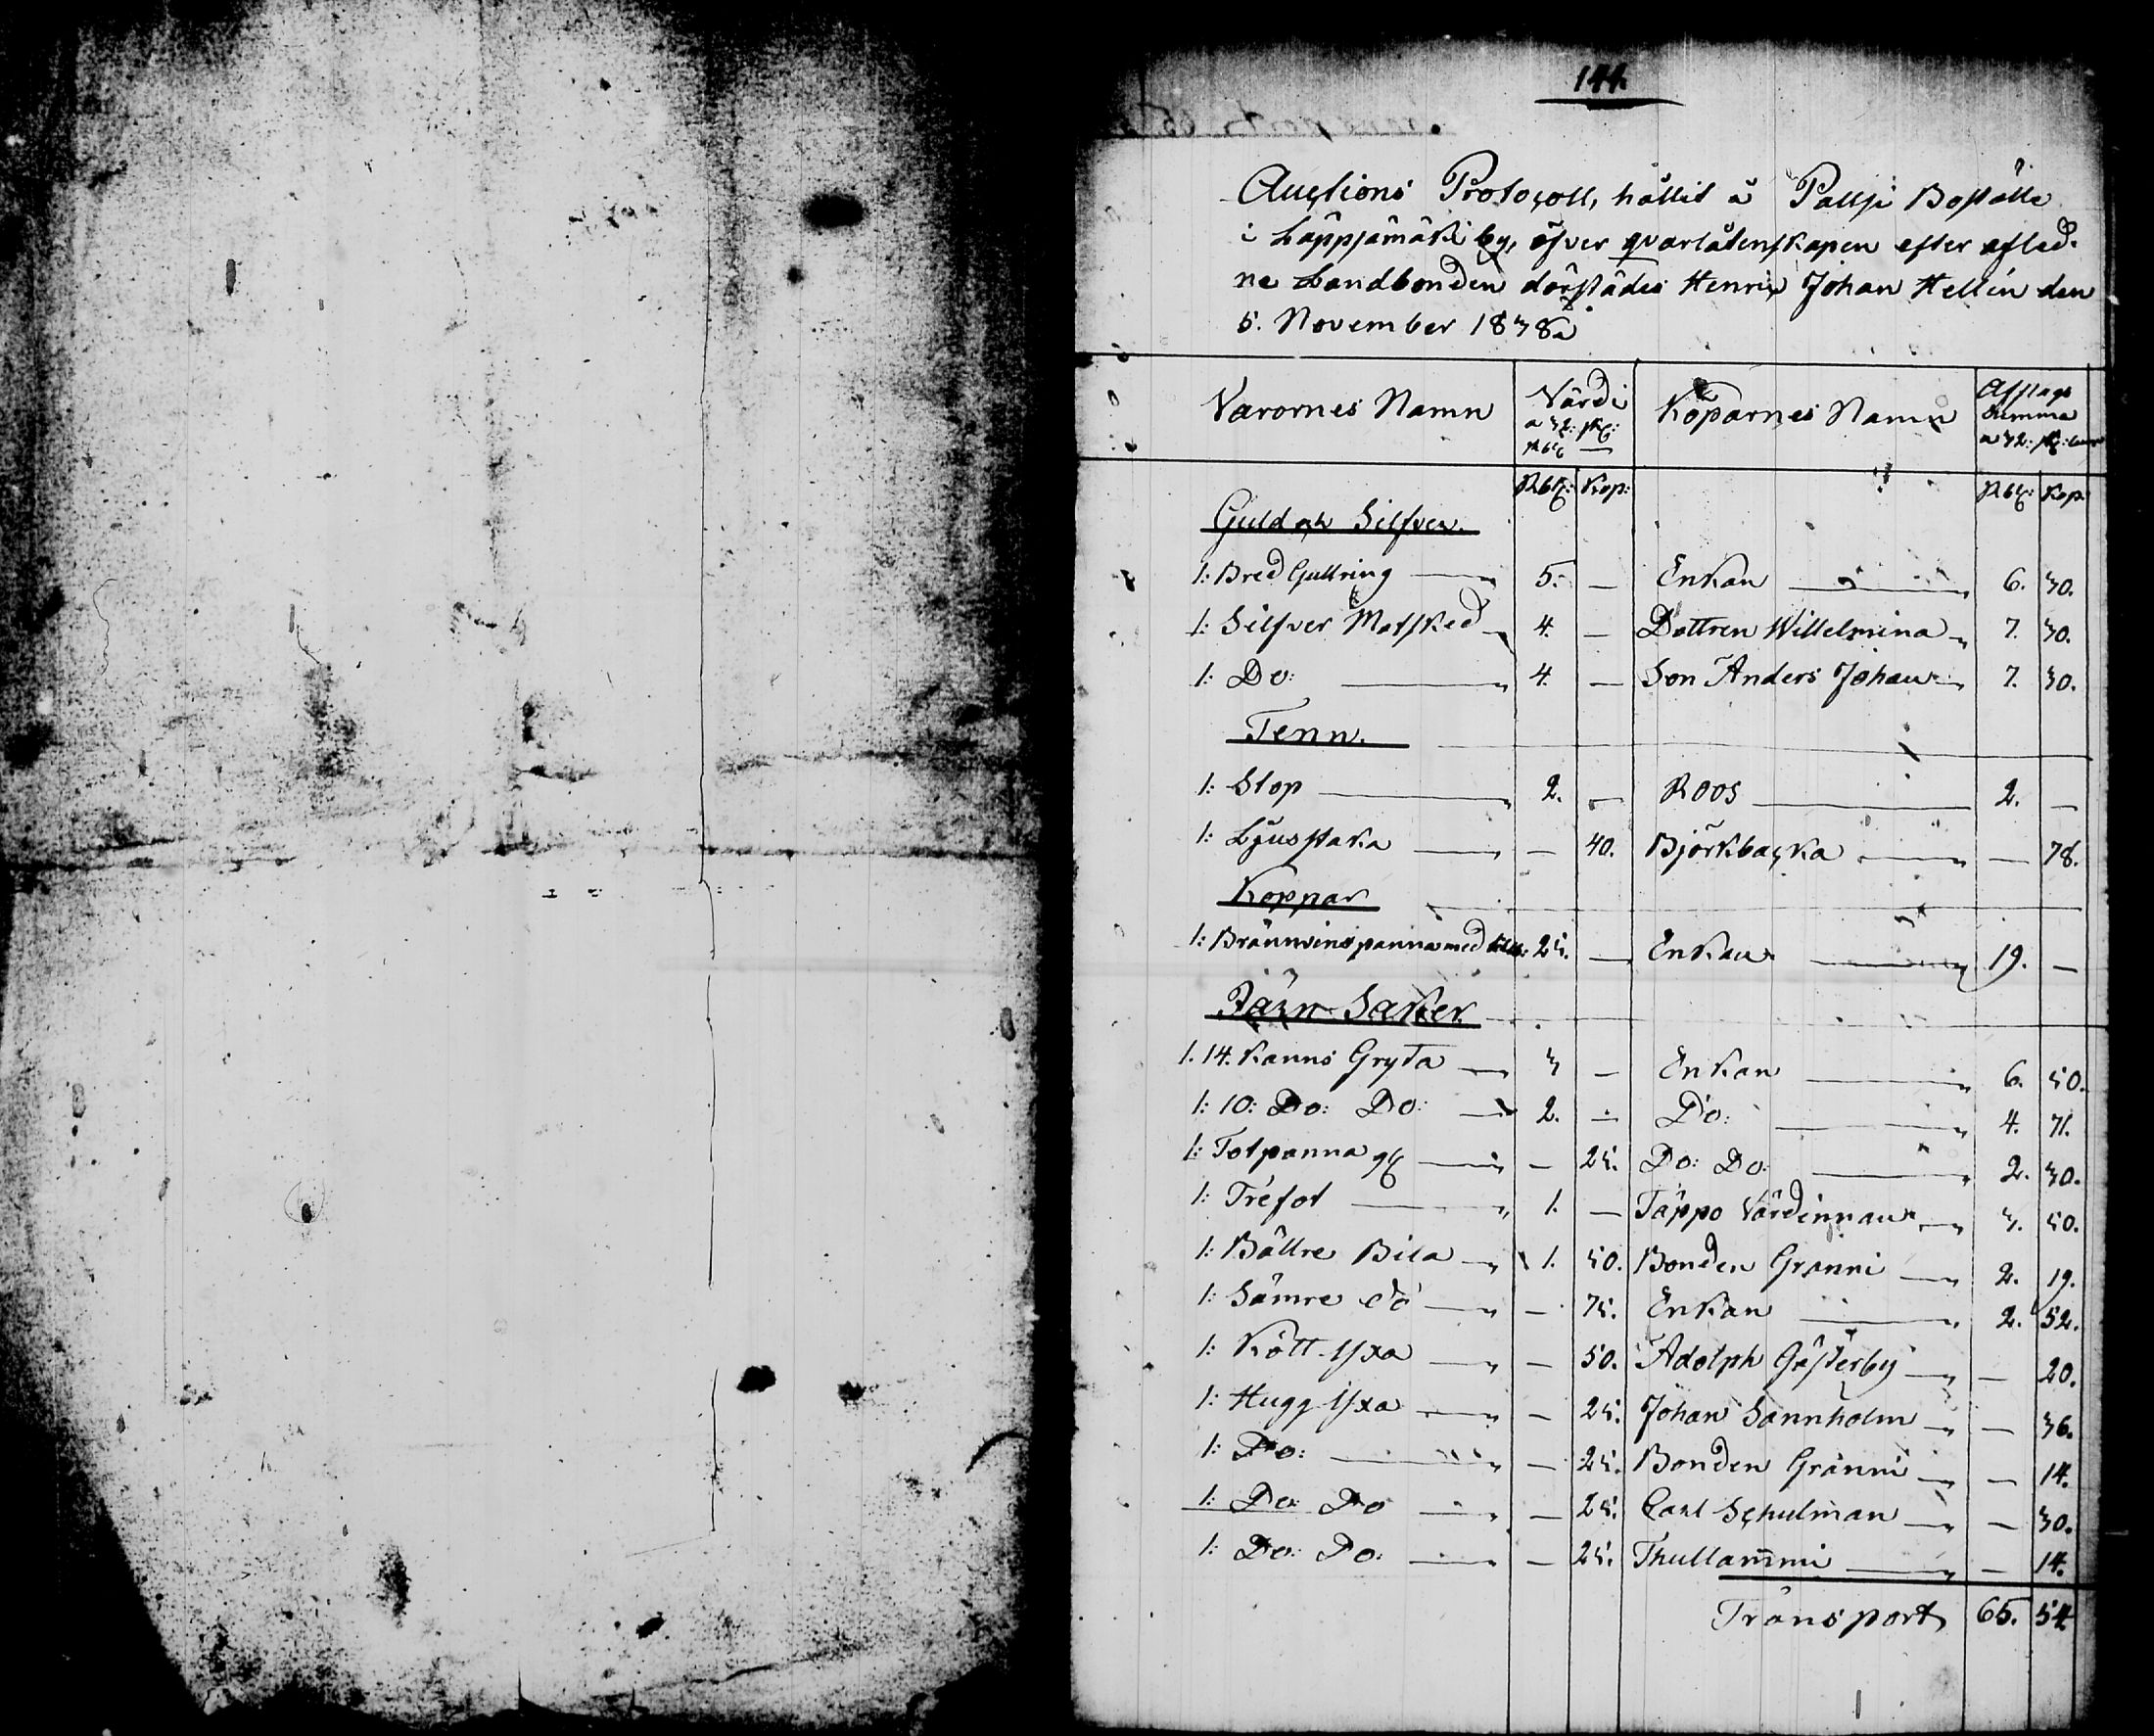 144.
Auctions Protocoll, hållit å Pallji Boställe
i Läppjämäki by, öfver qvarlåtenskapen efter afled-
ne Landbonden därstädes Henric Johan Hellin den
5. November 1838.
Varornes Namn Värdi Köparnes Namn Afslags
summa
Rbl: Kop: Rbl: Kop:
Guld och Silfver.
1: Bred Gullring 5. — Enkan 6. 30.
1: Silfver Matsked 4. — Dottren Willelmina 7. 30.
1: Do: 4. — Son Anders Johan 7. 30.
Tenn.
1: Stop 2. — Roos 2. —
1: Ljusstaka — 40. Björkbacka — 78.
Koppar
1: Brännvins panna med 25. — Enkan 19. —
Järn Saker
1. 14. Kanns Gryta 3 — Enkan 6. 50.
1: 10: Do: Do: 2. — Do: 4. 71.
1: Totpanna — 25. Do: Do: 2. 30.
1: Trefot 1. — Täppo Värdinnan 3. 50.
1: Bättre Bila 1. 50. Bonden Gränni 2. 19.
1: Sämre do — 75. Enkan 2. 52.
1: Kött Yxa — 50. Adolph Gästerby — 20.
1: Hugg Yxa — 25. Johan Sannholm — 36.
1: Do: — 25. Bonden Gränni — 14.
1: Do: Do — 25. Carl Schulman — 30.
1: Do: Do: — 25. Thullammi — 14.
Transport 65. 54